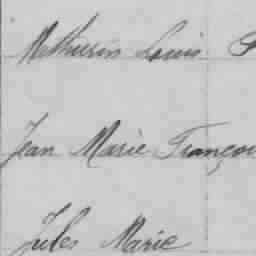 Mathurin Louis
Jean Marie Françoi
Jules Marie